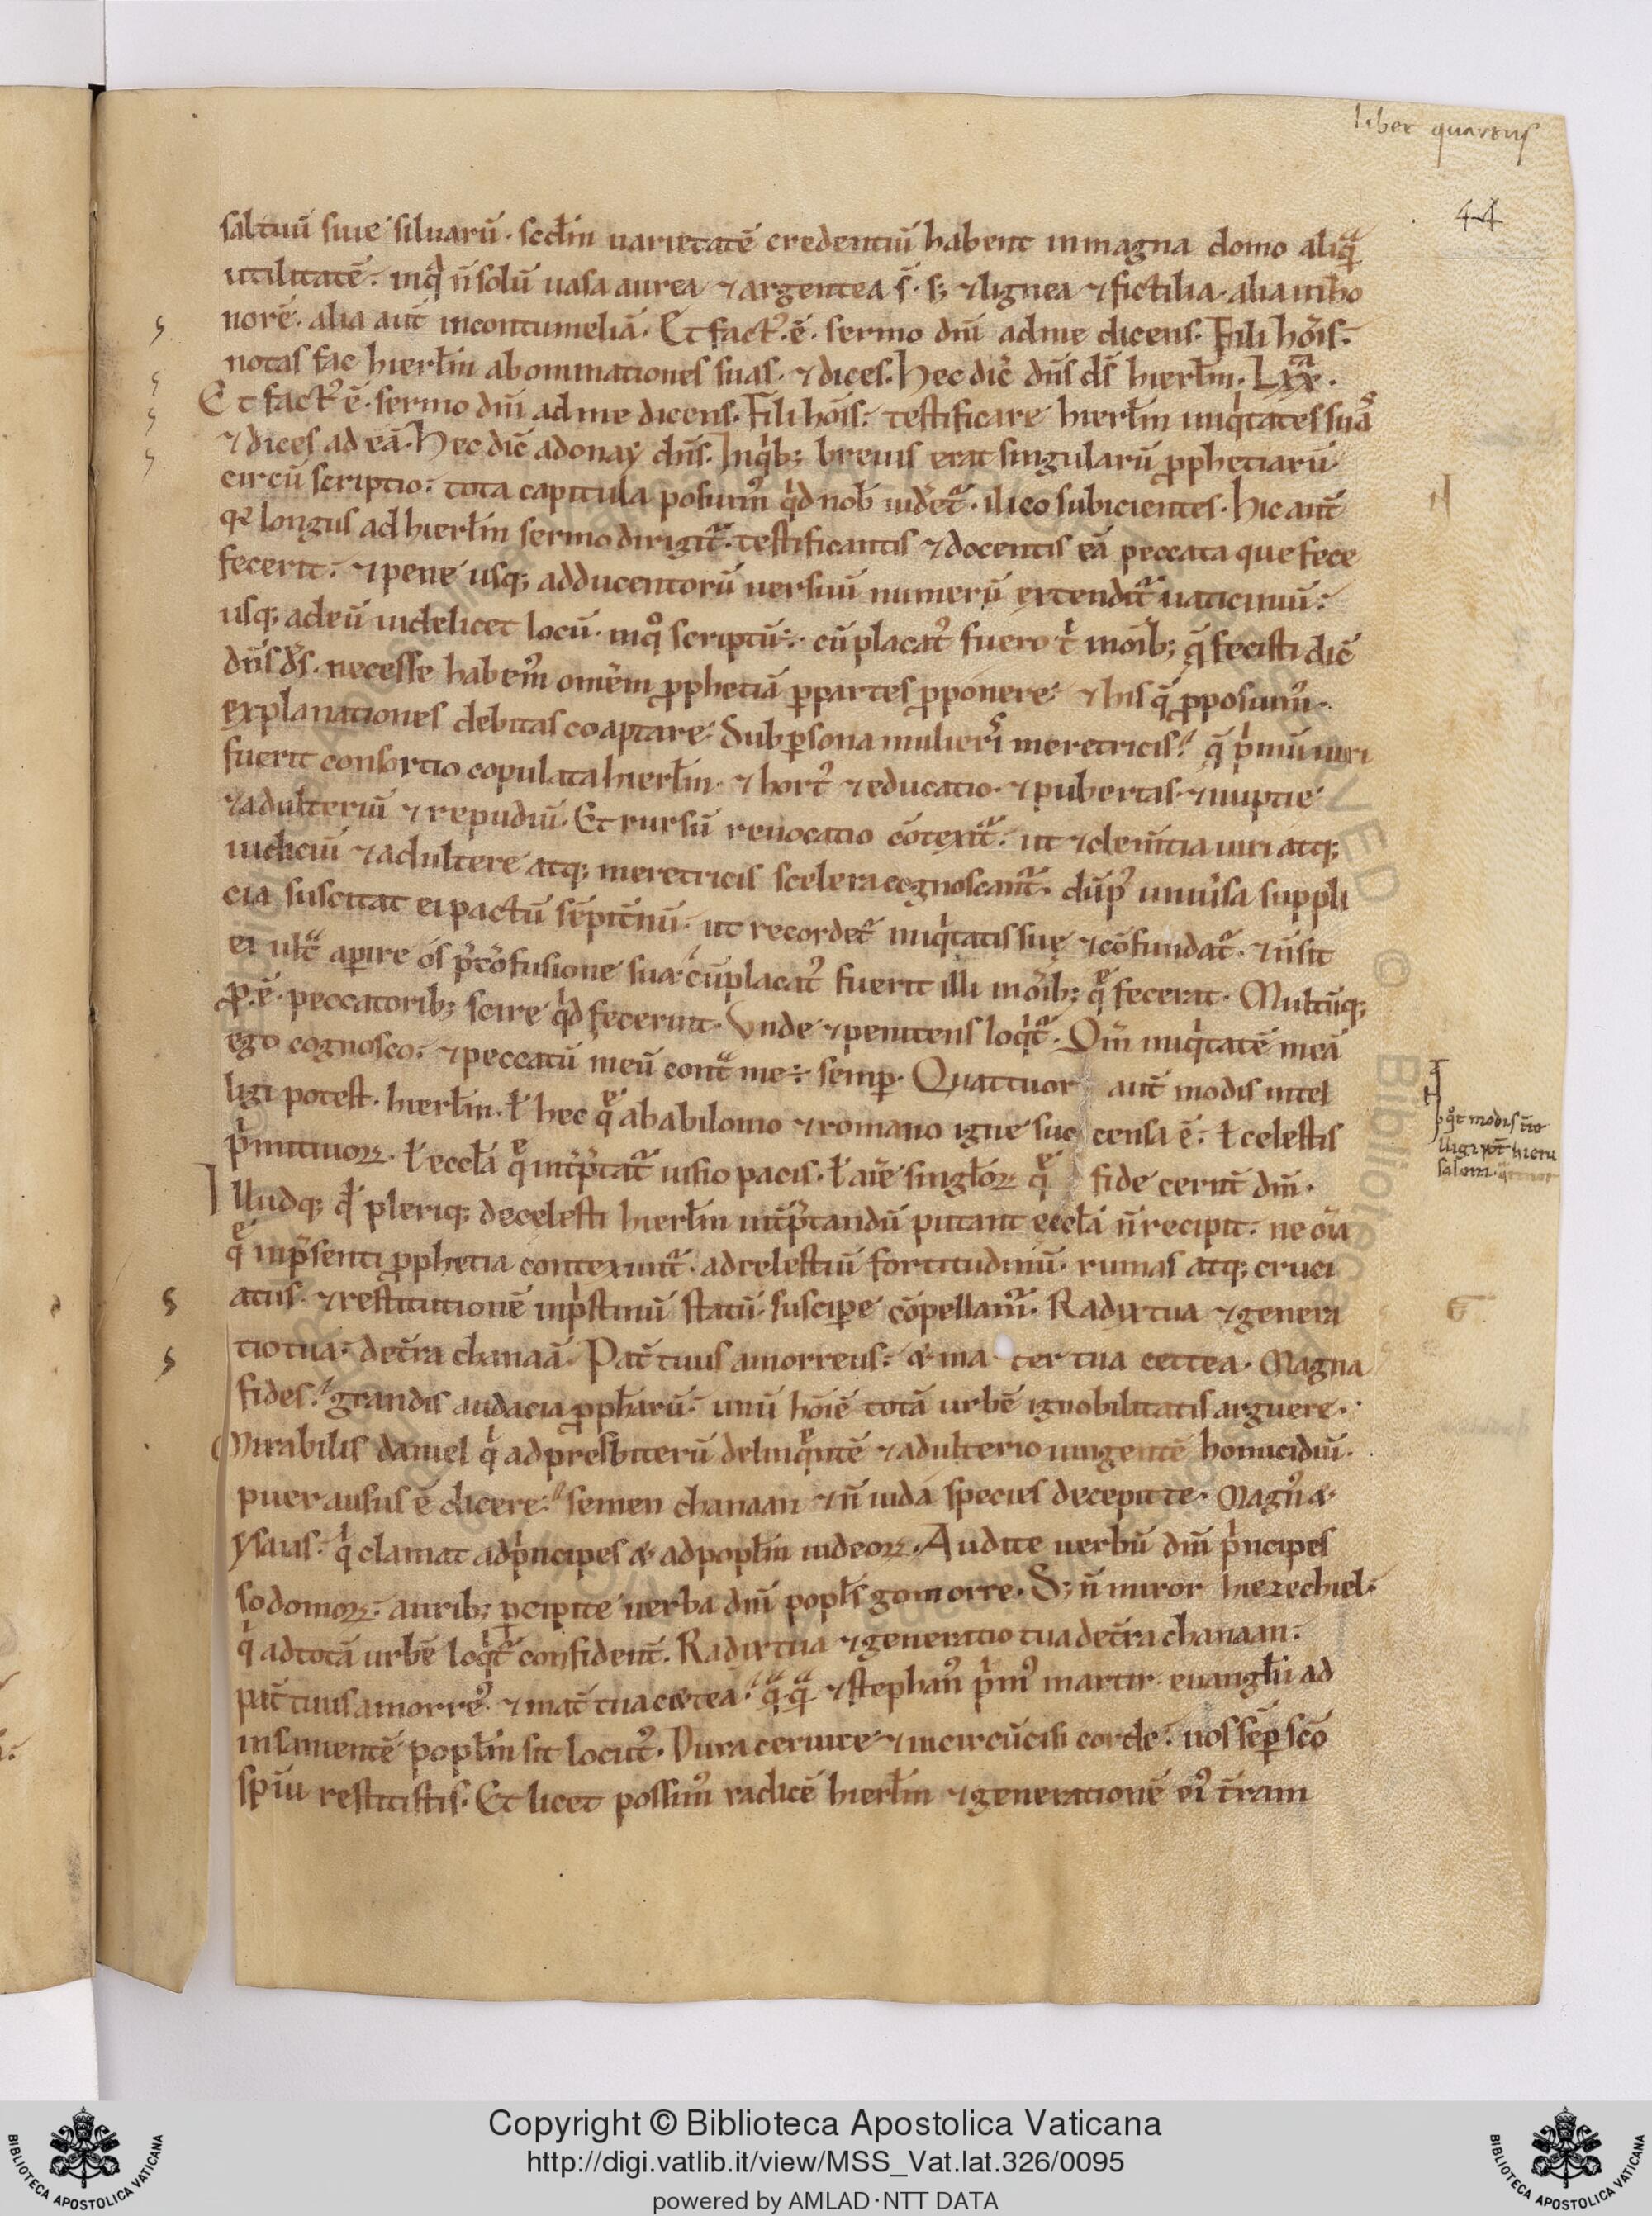 liber quartus
44
saltuū siue siluarū · scd̄m uarietatē credentiū habent in magna domo aliqͣ
utilitatē · in qͣ n̄ solū uasa aurea ⁊ argentea s̄ · s; ⁊ lignea ⁊ fictilia · alia in ho
norē · alia aut̄ in contumeliā · Et factꝰ · ē · sermo dn̄i ad me dicens · Fili hoīs ·
notas fac hierłm abominationes suas · ⁊ dices · Hec dic̄ dn̄s ds̄ hierłm · Lxxͣ ·
Et factꝰ ē · sermo dn̄i ad me dicens · Fili hoīs · testificare hierłm iniqͥtates suaˢ
⁊ dices ad eā · Hec dic̄ adonay dn̄s · In qͥb; breuis erat singularū ꝓphetiarū
circū scriptio · tota capitula posuimꝰ qͥd nob̄ uidet̄ · ilico subicientes · Hic aut̄
qꝛ longus ad hierłm sermo dirigit̄ · testificantis ⁊ docentis eā peccata que fece
fecerit · ⁊ pene usq; ad ducentorū uersuū numerū extendit̄ uaticiniū ·
usq; ad eū uidelicet locū · in qͦ scriptū · ÷ · cū placatꝰ fuero tͥ in oīb; q̄ fecisti dic̄
dn̄s ds̄ · necesse habemꝰ omēm ꝓphetiā ꝑ partes ꝓponere · ⁊ his q̄ ꝓposuimꝰ ·
explanationes debitas coaptare · Sub ꝑsona mulierͥs meretricis · q̄ pͥmū uiri
fuerit consortio copulata hierłm · ⁊ hortꝰ ⁊ educatio · ⁊ pubertas · ⁊ nuptie
⁊ adulteriū ⁊ repudiū · Et rursū reuocatio cōtexit̄ · ut ⁊ clem̄tia uiri atq;
iudiciū ⁊ adultere atq; meretricis scelera cognoscant̄ · dū pꝰ uniūsa suppli
cia suscitat ei pactū sēpit̄nū · ut recordet̄ iniqͥtatis suę ⁊ cōfundat̄ · ⁊ n̄ sit
ei ultͣ aꝑire os p̄ cōfusione sua · cū placatꝰ fuerit illi in oīb; qͤ fecerat · Multūq;
ꝓ · ē · peccatorib; scire qͥd fecerint · Vnde ⁊ penitens loqͥt̄ · Qm̄ iniqͥtatē meā
ego cognosco · ⁊ peccatū meū contͣ me ÷ semꝑ · Quattuor aut̄ modis intel
ligi potest · hierłm · ł hec qͤ a babilonio ⁊ romano igne suc censa ē · ł celestis
pͥmitiuoꝝ · ł eccła qͤ int̄p̄tat̄ uisio pacis · ł aīe singłoꝝ qͤ fide cernt̄ dm̄ ·
Illudq; qđ pleriq; de celesti hierłm int̄p̄tandū putant eccła n̄ recipit · ne oīa
qͤ in p̄senti ꝓphetia contexunt̄ · ad celestiū fortitudinū · ruinas atq; cruci
atus · ⁊ restitutionē in pͥstinū statū suscipe cōpellamꝰ · Radix tua ⁊ genera
tio tua · de t̄ra chanaā · Pat̄ tuus amorreus · & ma ter tua cettea · Magna
fides · grandis audacia ꝓpharū · unū hoīē totā urbē ignobilitatis arguere ·
Mirabilis daniel qͥ ad presbiterū delinqͤntē ⁊ adulterio iungentē homicidiū ·
puer ausus ē dicere · semen chanaan ⁊ n̄ iuda species decepit te · Magnꝰ &
ysaias · qͥ clamat ad pͥncipes & ad popłm iudeoꝝ · Audite uerbū dn̄i pͥncipes
sodomoꝝ · aurib; ꝑcipite uerba dn̄i popłs gomorre · S; n̄ miror hiezechiel ·
qͥ ad totā urbē loqͥt̄ confident̄ · Radix tua ⁊ generatio tua de t̄ra chanaan ·
pat̄ tuus amorreꝰ · ⁊ mat̄ tua cettea · qͣ qͣ ⁊ stephanꝰ pͥmꝰ martir euangłii ad
insanientē popłm sit locutꝰ · Dura ceruice ⁊ incircūcisi corde · uos sēꝑ sc̄o
sp̄iu restitistis · Et licet possimꝰ radicē hierłm ⁊ generationē eiꝰ t̄ram
qͦt modis īte
lligi pōt hieru
salem